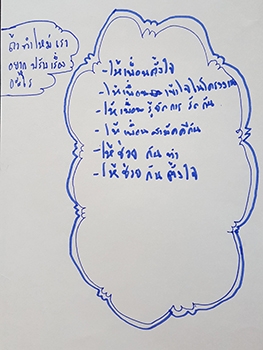 ถ้าทำใหม่ เรา
อยาก ปรับ เรื่อง
อะไร
-ให้เพื่อนตั้งใจ
-ให้เพื่อน เข้าใจในโครงงาน
-ให้เพื่อน รู้จัก การ รัก กัน
-ให้ เพื่อน สามัคคีกัน
-ให้ ช่วย กัน ทำ
-ให้ ช่วย กัน ตั้งใจ